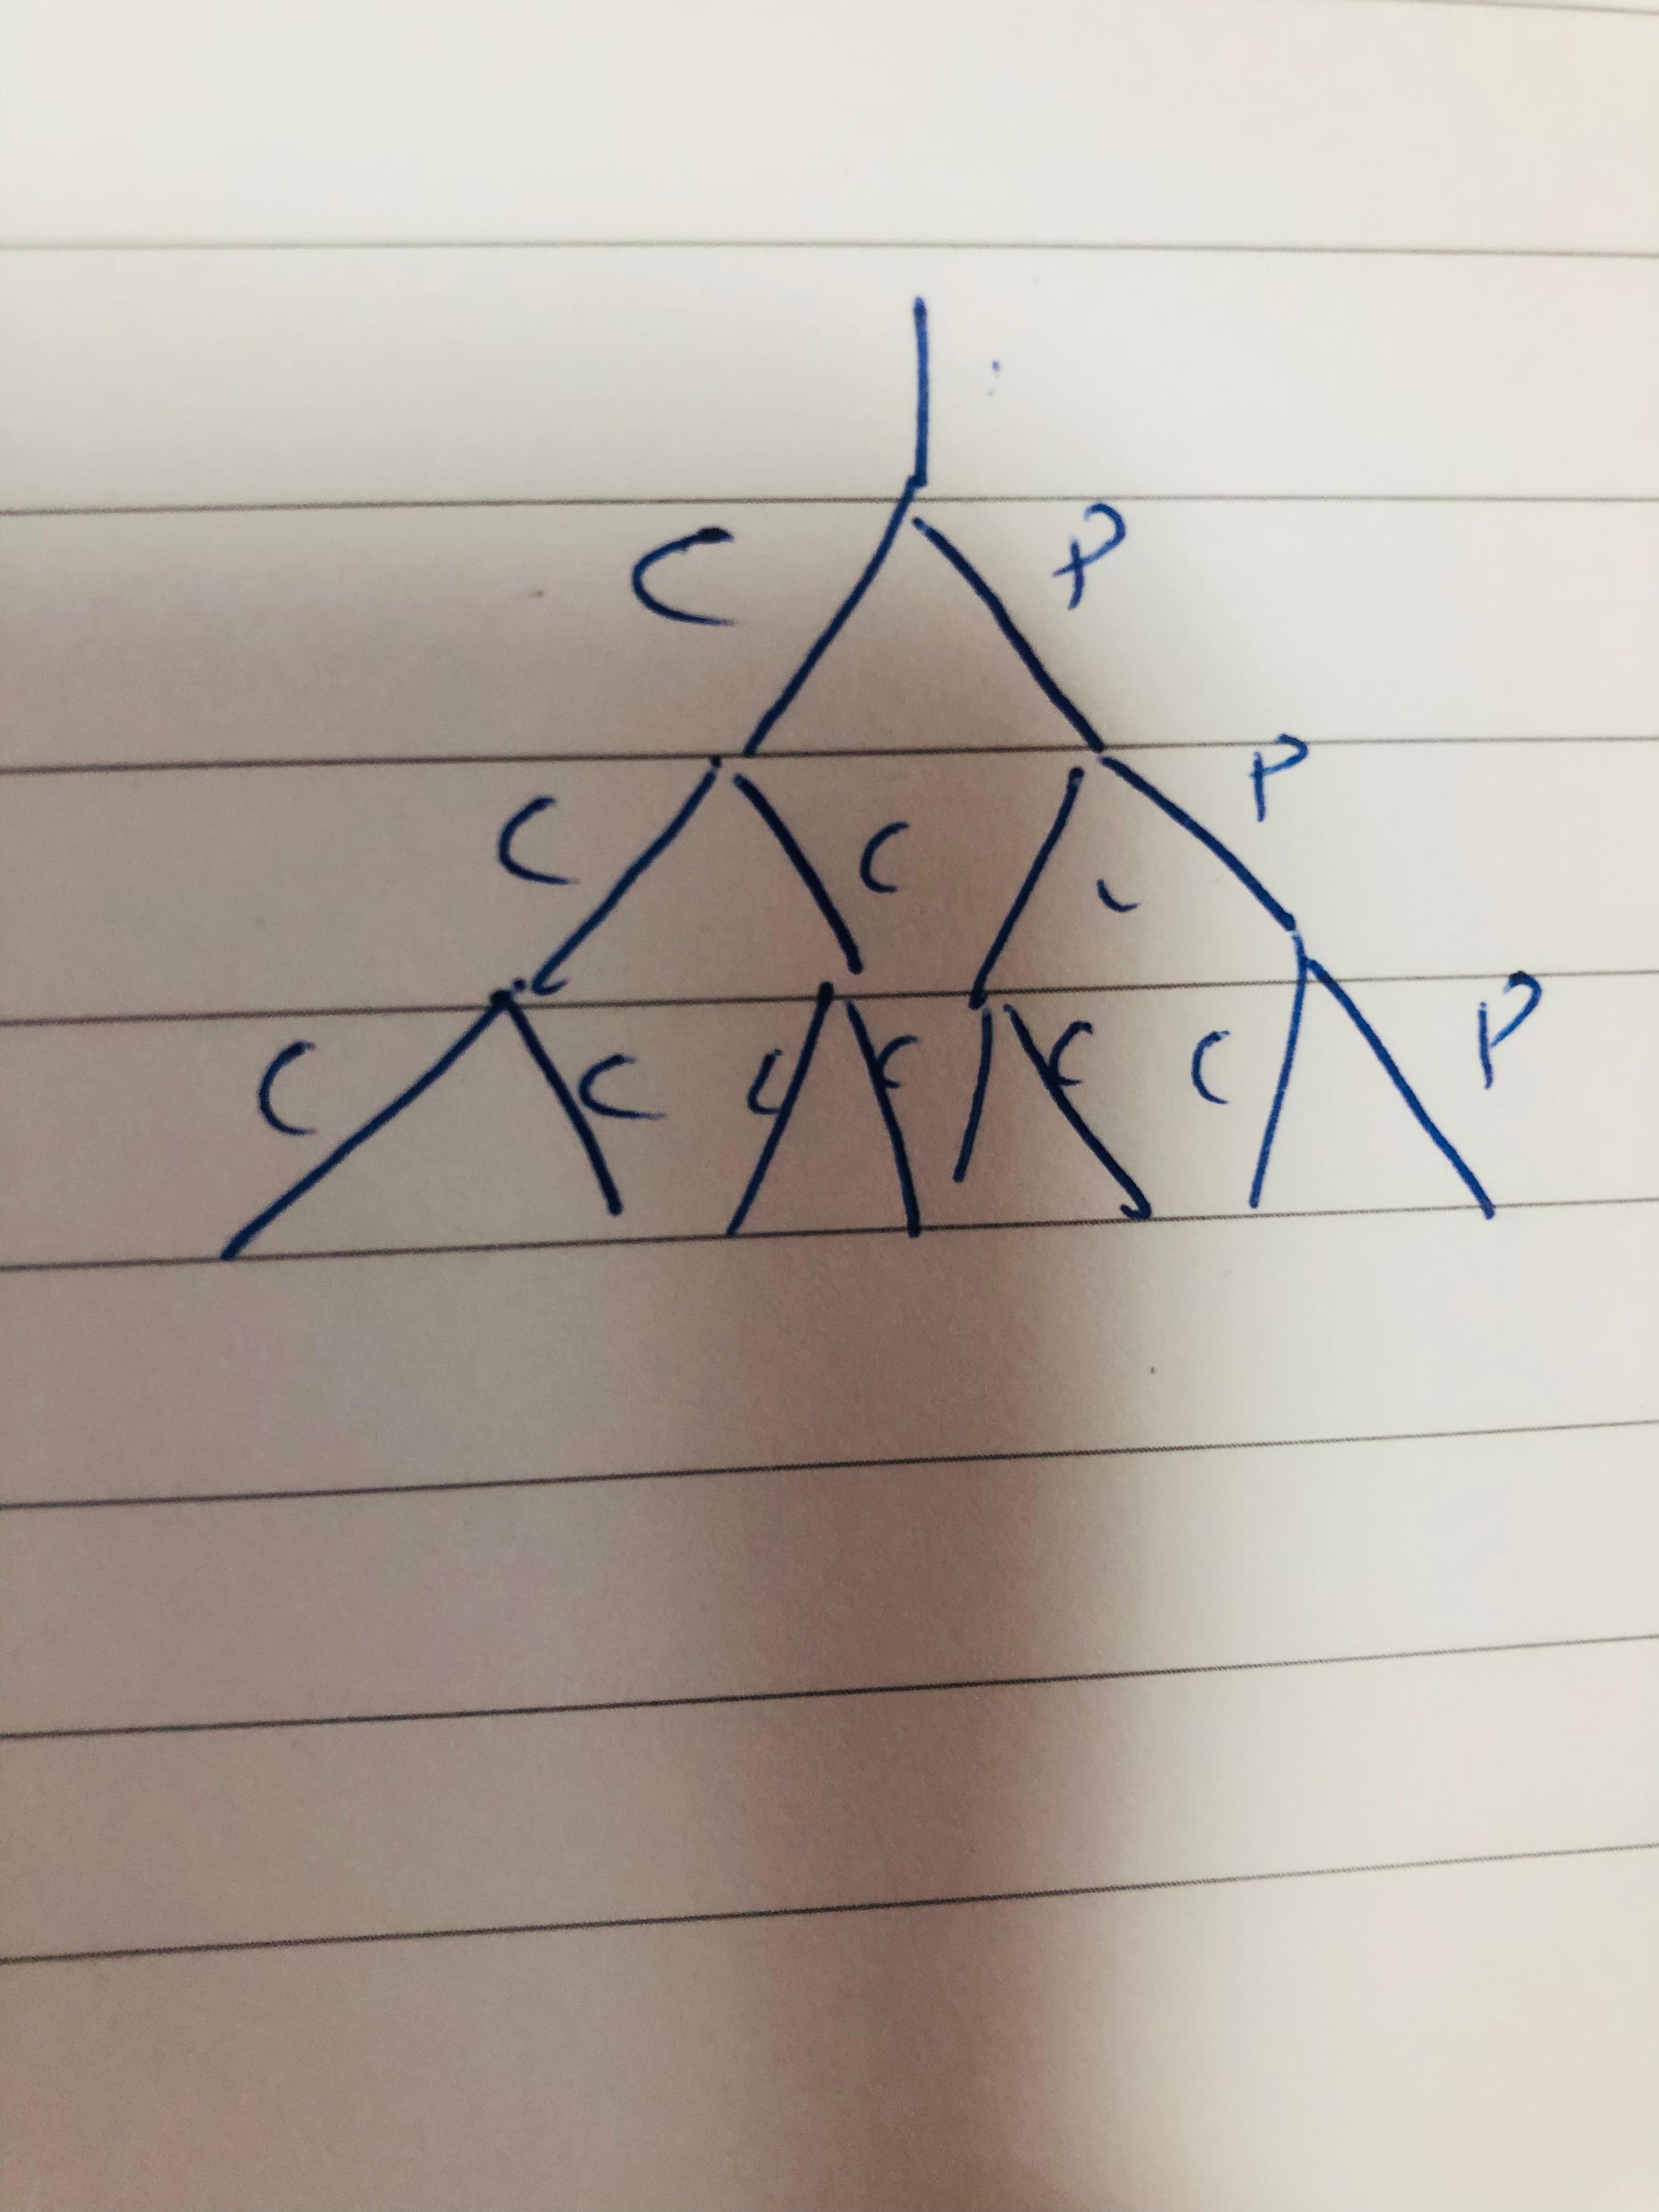 C P
C C C P
C C C C C C P